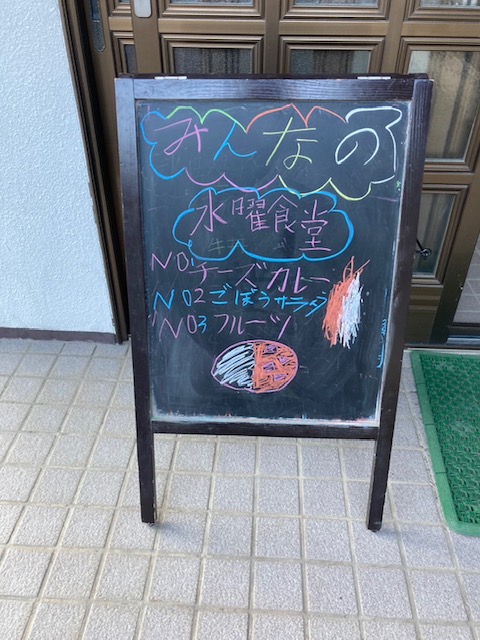 みんなの
水曜食堂
NO1 チーズカレー
NO2 ごぼうサラダ
NO3 フルーツ